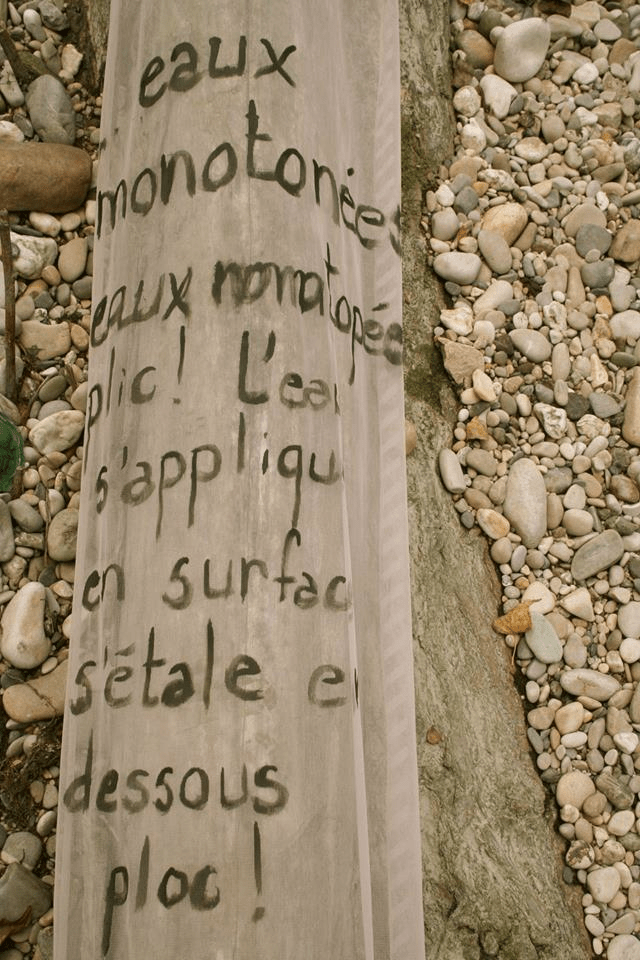 eaux
monotonées
eaux nomatopées
plic! L'eau
s'appliqu
en surfac
s'étale e
dessous
ploc!